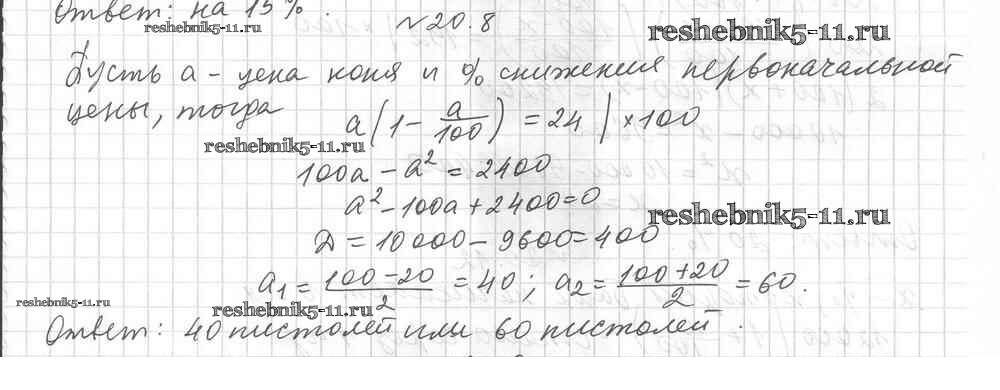 Ответ: на 15%.
reshebnik5-11.ru
№20.8
reshebnik5-11.ru
Пусть а - цена коня и % снижения первоначальной
цены, тогда a(1 - a/100) = 24 | ×100
reshebnik5-11.ru
100a - a² = 2400
a² - 100a + 2400 = 0
reshebnik5-11.ru
D = 10000 - 9600 = 400
a₁ = (100 - 20)/2 = 40; a₂ = (100 + 20)/2 = 60.
reshebnik5-11.ru
reshebnik5-11.ru
Ответ: 40 пистолей или 60 пистолей.